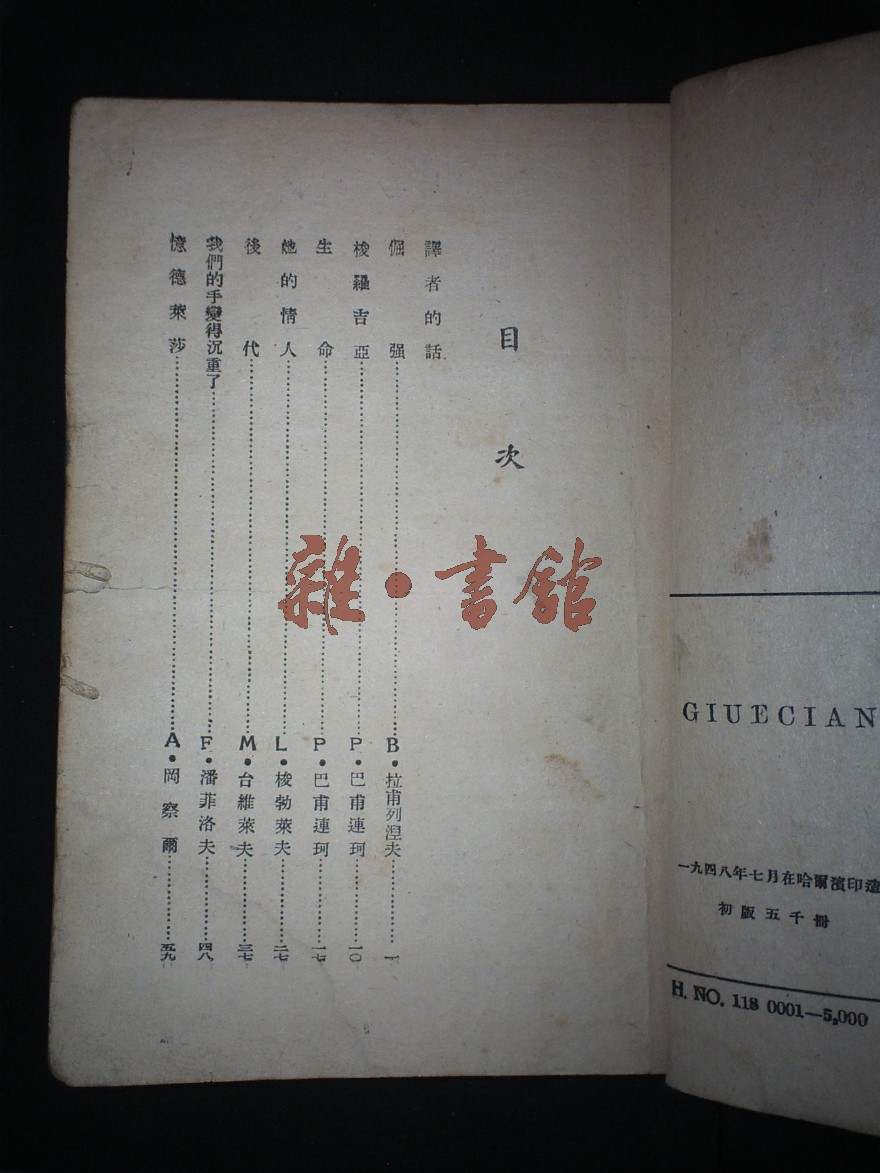 目次
譯者的話
倔强……B•拉甫列涅夫……一
梭羅吉亞……P•巴甫連珂……一〇
生命……P•巴甫連珂……一七
她的情人……L•梭勃萊夫……二七
後代……M•台維萊夫……三七
我們的手變得沉重了……F•潘菲洛夫……四八
憶德萊莎……A•岡察爾……五九
雜•書館
GIUECIAN
一九四八年七月在哈爾濱印造
初版五千冊
H. NO. 118 0001—5,000